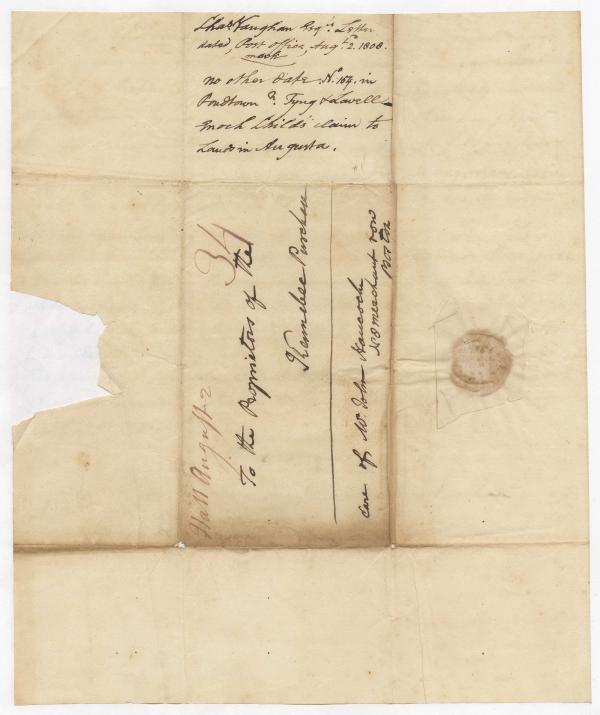 Chas Vaughan Esqrs Letter
dated, Post office, Augt 2. 1808.
mark
no other date No. 159. in
Pondtown &. Tyng & Lovell
Enoch Child's claim to
Lands in Augusta.
34
Hall August 2
To the Proprietors of the
Kennebec Purchase
Care of Mr. John Hancock
No 8 merchant row
Boston